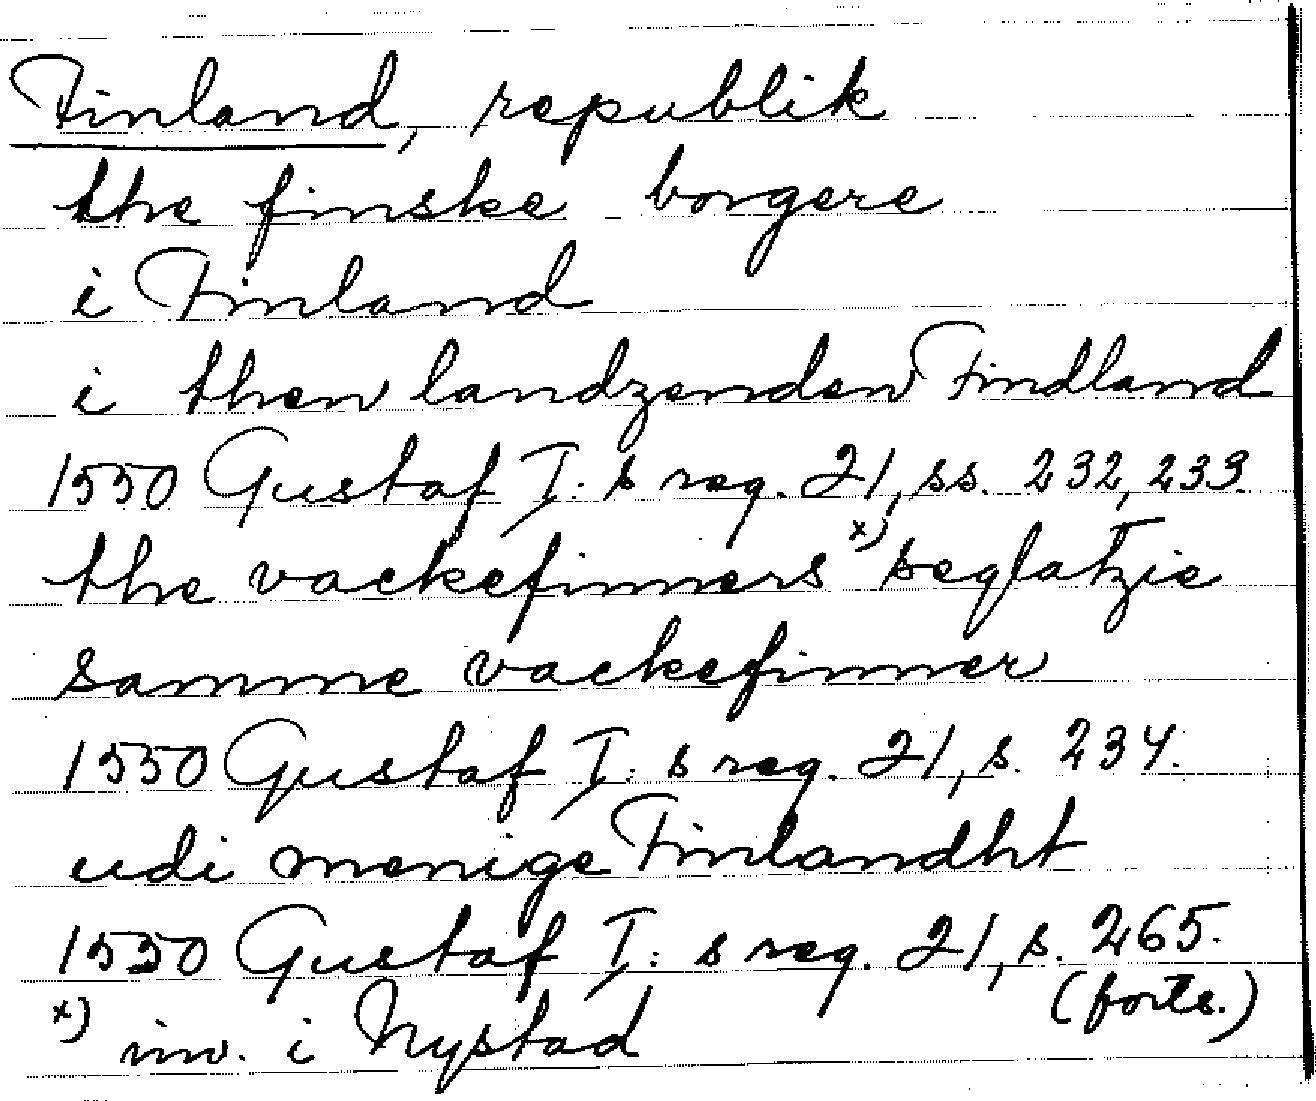 Finland, republik
the finske borgere
i Finland
i then landzenden Findland
1550 Gustaf I:s reg. 21, ss. 232, 233
the vackefinners x) seglatzie
samme vackefinner
1550 Gustaf I:s reg. 21, s. 234.
udi menige Finlandht
1550 Gustaf I:s reg. 21, s. 265.
(forts.)
x) inv. i Nystad